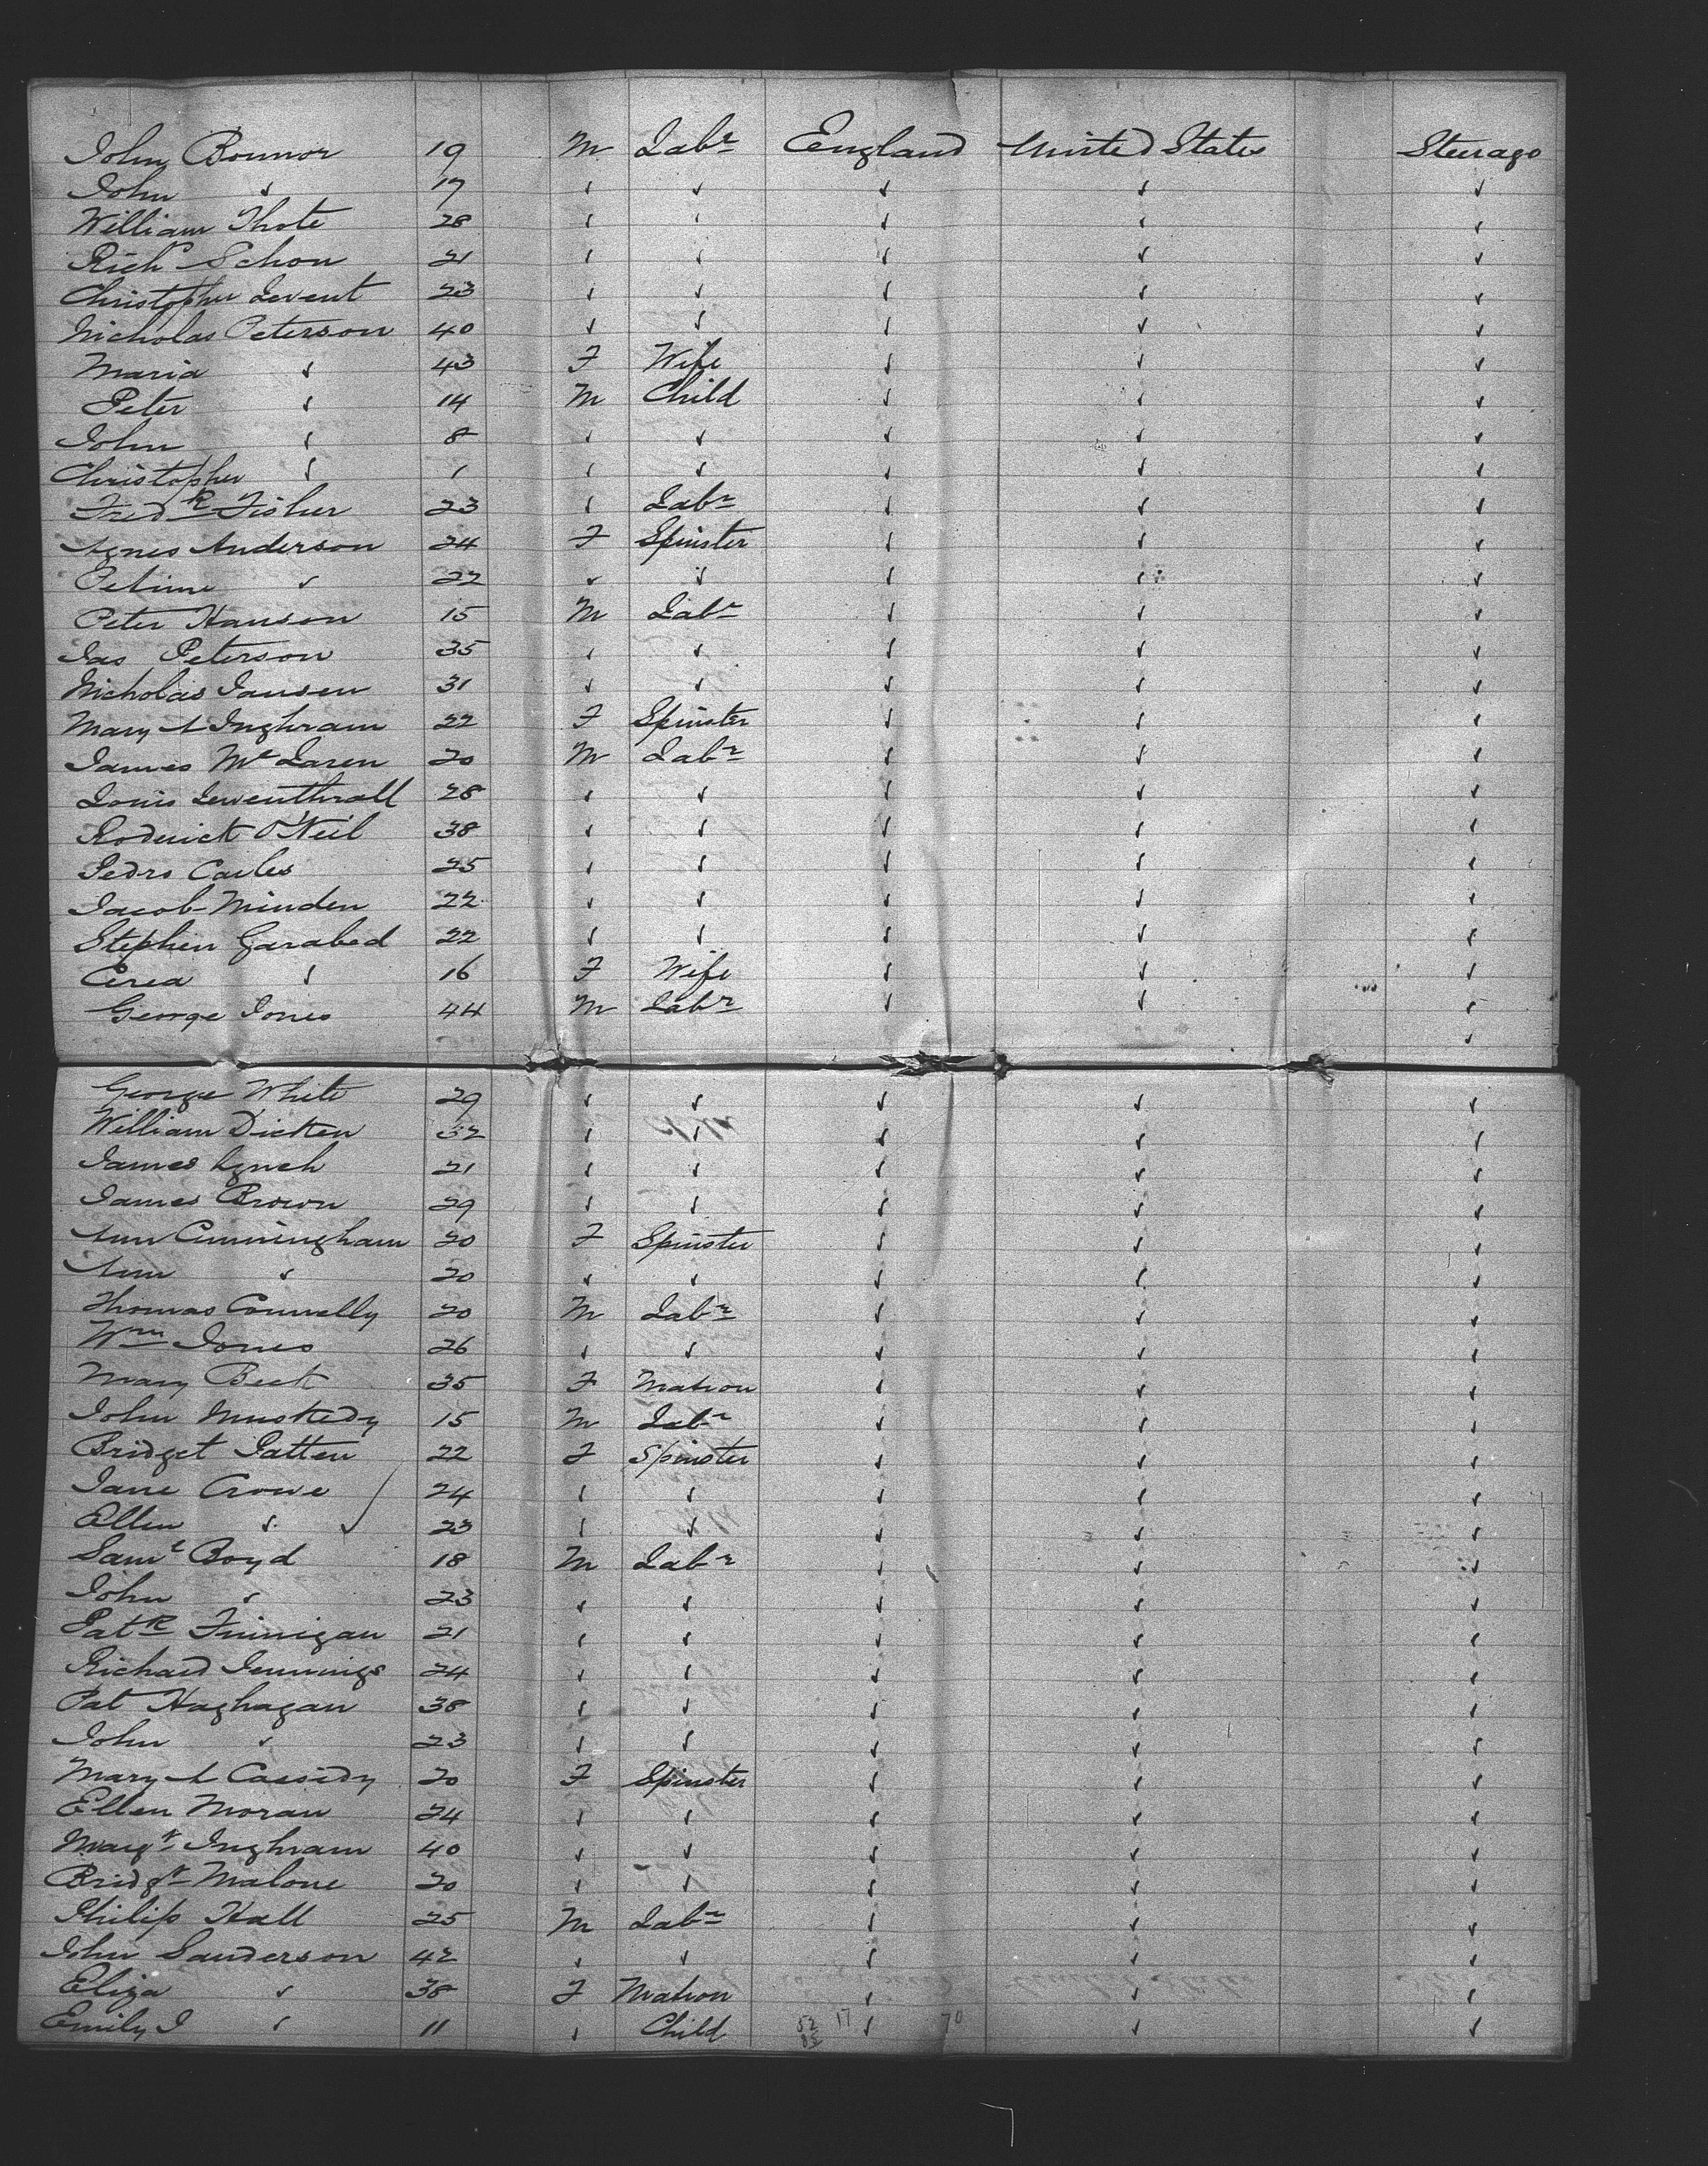 John Bonnor 19 M Labr England United States Steerage
John " 17 " " " " "
William Thote 28 " " " " "
Richd Schon 21 " " " " "
Christopher Levent 23 " " " " "
Nicholas Peterson 40 " " " " "
Maria " 43 F Wife " " "
Peter " 14 M Child " " "
John " 8 " " " " "
Christopher " 1 " " " " "
Fredk Fisher 23 " Labr " " "
Agnes Anderson 24 F Spinster " " "
Petime " 22 " " " " "
Peter Hansen 15 M Labr " " "
Jas Peterson 35 " " " " "
Nicholas Jansen 31 " " " " "
Mary A Inghram 22 F Spinster " " "
James McLaren 20 M Labr " " "
Louis Lewenthrall 28 " " " " "
Roderick O'Neil 38 " " " " "
Pedro Carles 25 " " " " "
Jacob Minden 22 " " " " "
Stephen Garabed 22 " " " " "
Cerea " 16 F Wife " " "
George Jones 44 M Labr " " "
"
George White 29 " " " " "
William Dicken 32 " " " " "
James Lynch 21 " " " " "
James Brown 29 " " " " "
Ann Cunningham 20 F Spinster " " "
Ann " 20 " " " " "
Thomas Connelly 20 M Labr " " "
Wm Jones 26 " " " " "
Mary Beck 35 F Matron " " "
John Muskedy 15 M Labr " " "
Bridget Patten 22 F Spinster " " "
Jane Crowe 24 " " " " "
Ellen " 23 " " " " "
Saml Boyd 18 M Labr " " "
John " 23 " " " " "
Patk Finnigan 21 " " " " "
Richard Jennings 24 " " " " "
Pat Haghagan 38 " " " " "
John " 23 " " " " "
Mary A Cassidy 20 F Spinster " " "
Ellen Moran 24 " " " " "
Margt Inghram 40 " " " " "
Bridgt Malone 20 " " " " "
Philip Hall 25 M Labr " " "
John Sanderson 42 " " " " "
Eliza " 38 F Matron " " "
Emily J " 11 " Child " " "
52 17 70